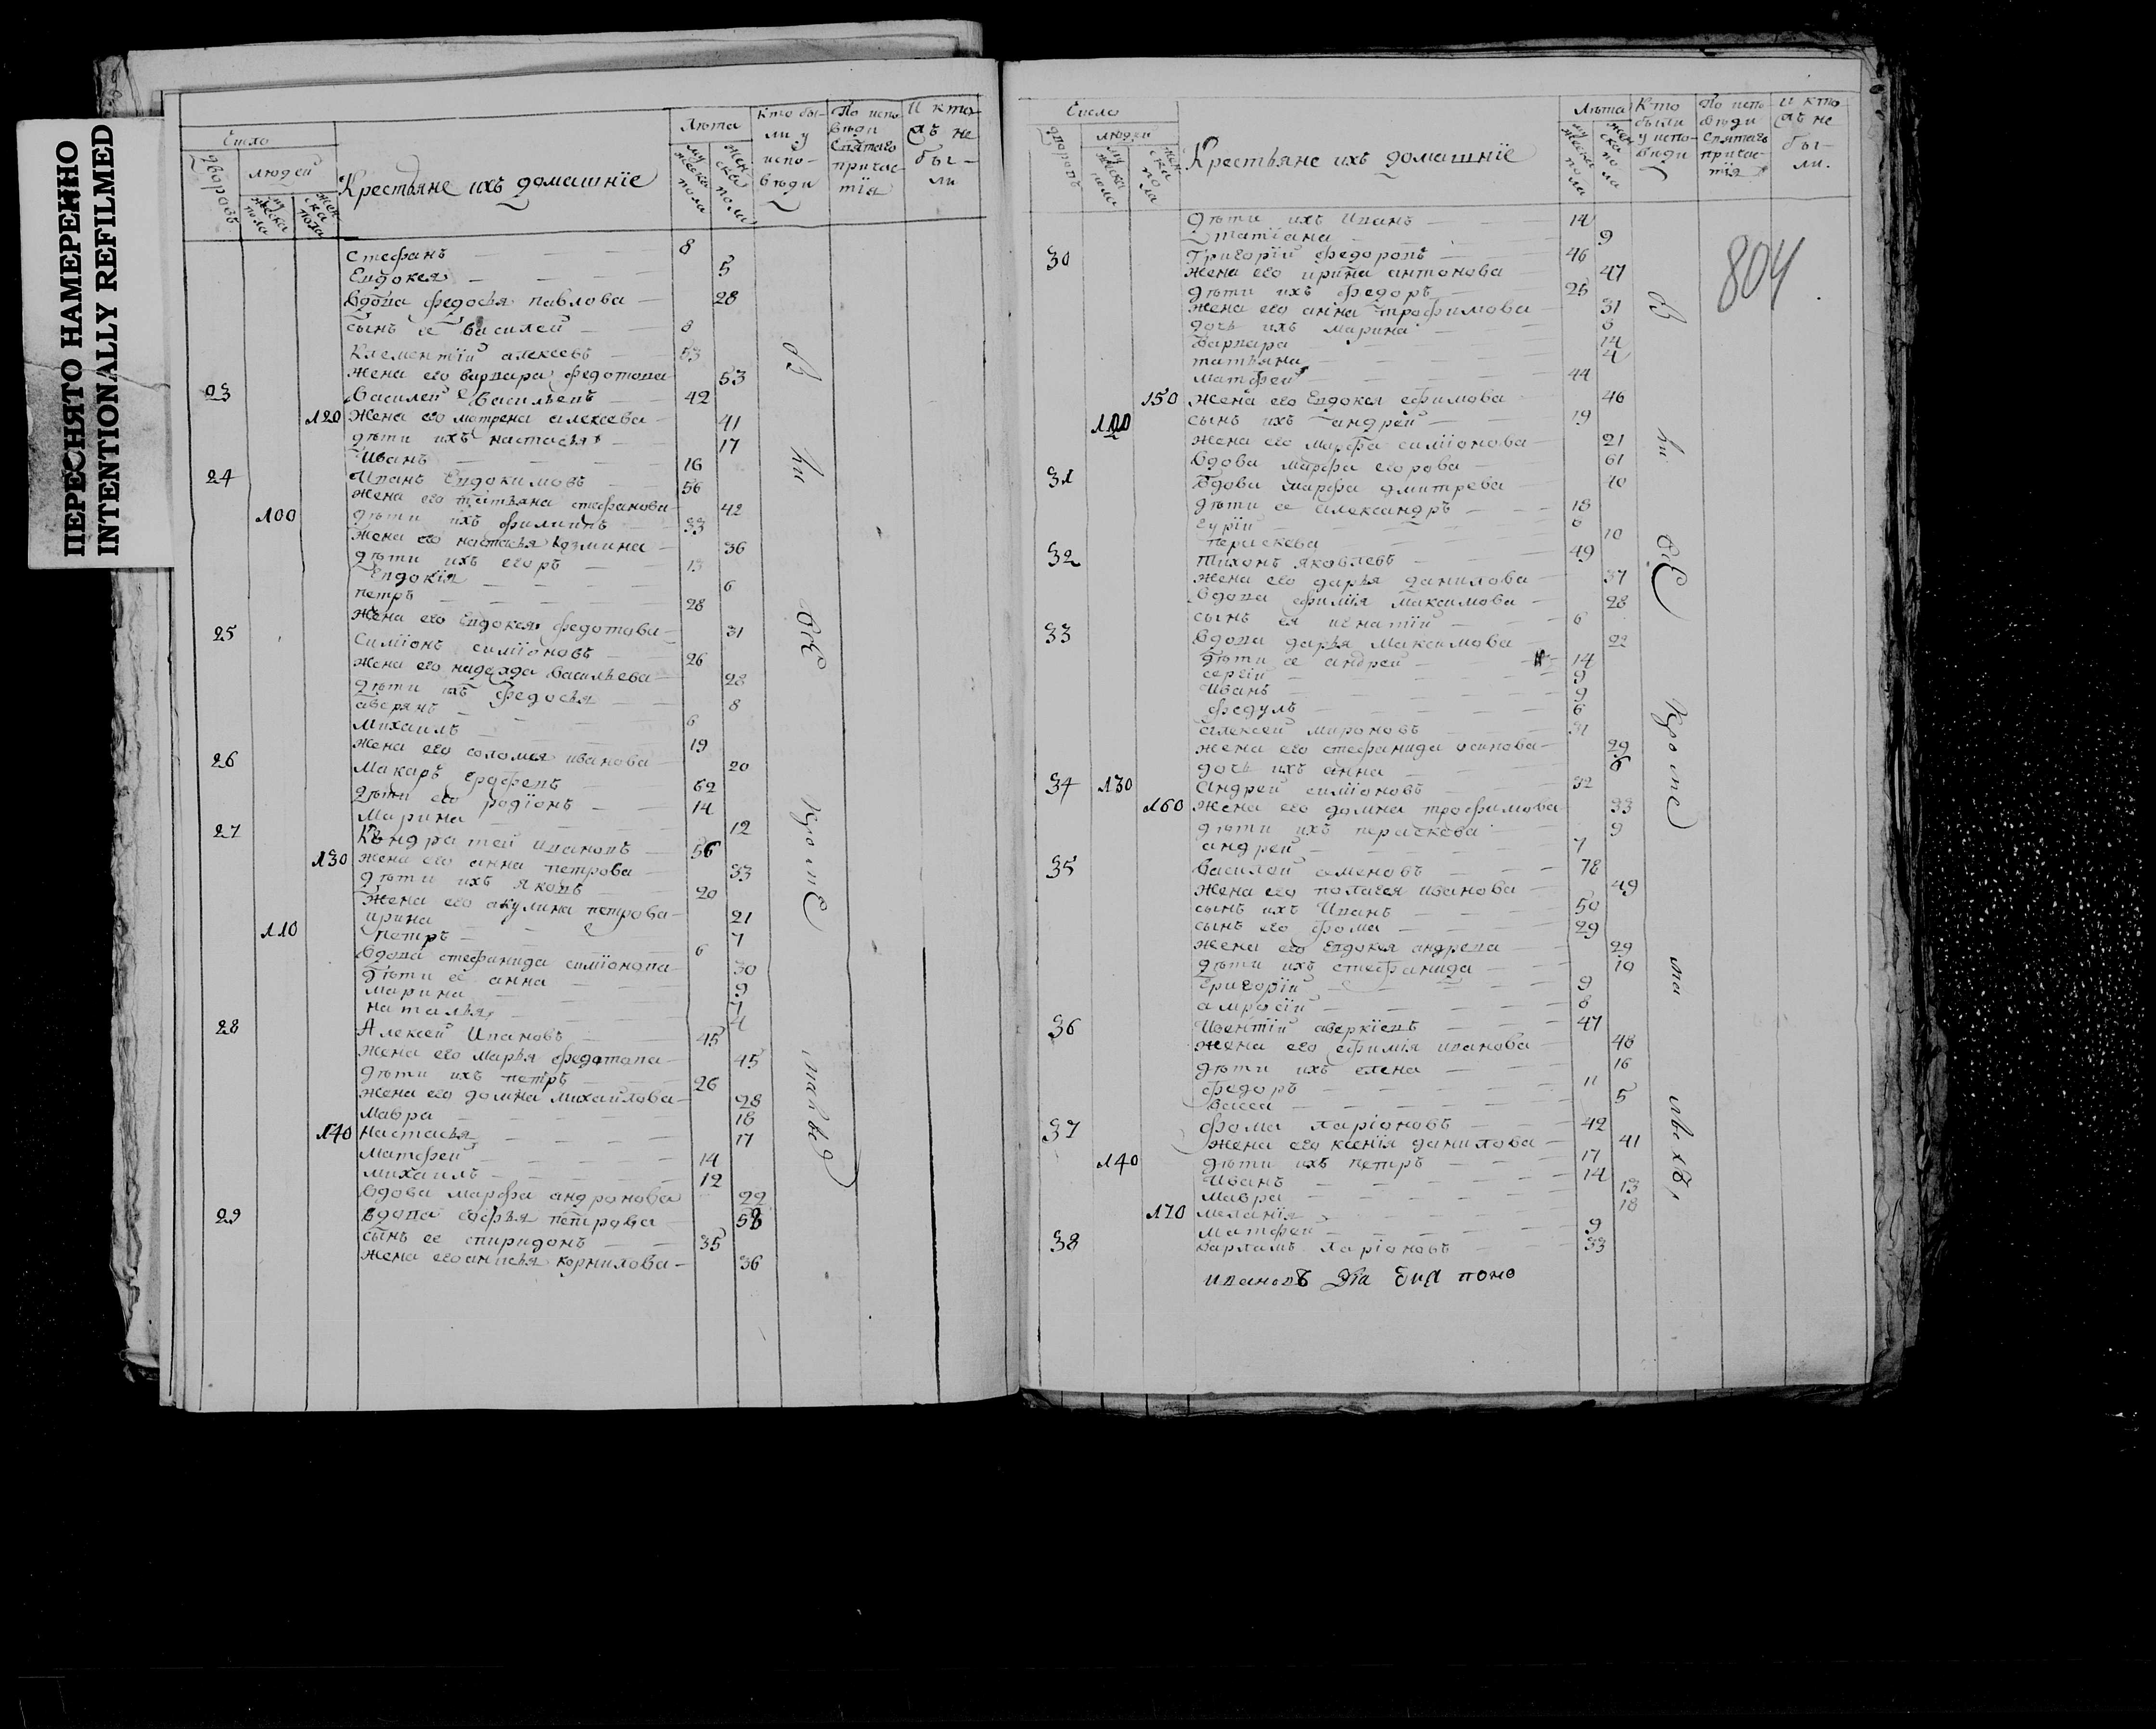 ПЕРЕСНЯТО НАМЕРЕННО
INTENTIONALLY REFILMED
Число
дворовъ
людей
мужеска пола
женска пола
Крестьяне ихъ домашніе
Лѣта
мужеска пола
женска пола
Кто были у исповѣди
По исповѣди святаго причастія
И кто жъ не были
Стефанъ 8
Евдокея 5
вдова федосья павлова 28
сынъ ее василей 8
Клементій алексеевъ 53
жена его варвара федотова 53
23 василей васильевъ 42
120 жена его матрена алексеева 41
дѣти ихъ настасья 17
Иванъ 16
24 Иванъ Евдокимовъ 56
жена его татьяна стефанова 42
100 дѣти ихъ филиппъ 33
жена его настасья козмина 36
дѣти ихъ егоръ 13
Евдокія 6
петръ 28
жена его Евдокея федотова 31
25 Симіонъ симіоновъ 26
жена его надежда васильева 28
дѣти ихъ федосья 8
аверянъ 6
Михаилъ 19
жена его соломея иванова 20
26 Макаръ Ерофеевъ 62
дѣти его родіонъ 14
Марина 12
27 Кондратей ивановъ 56
130 жена его анна петрова 33
дѣти ихъ яковъ 20
жена его акулина петрова 21
ирина 7
110 петръ 6
вдова стефанида симіонова 30
дѣти ее анна 9
марина 7
наталья 4
28 Алексей Ивановъ 45
жена его марья федотова 45
дѣти ихъ петръ 26
жена его домна михайлова 28
мавра 18
140 настасья 17
Матфей 14
михаилъ 12
вдова марфа андронова 22
29 вдова софья петрова 58
сынъ ее спиридонъ 35
жена его анисья корнилова 36
всѣ
кроме
Число
дворовъ
людей
мужеска пола
женска пола
Крестьяне ихъ домашніе
Лѣта
мужеска пола
женска пола
Кто были у исповѣди
По исповѣди святаго причастія
и кто жъ не были.
804
дѣти ихъ Иванъ 14
татіана 9
30 Григорій федоровъ 46
жена его ирина антонова 47
дѣти ихъ федоръ 25
жена его анна трофимова 31
дочь ихъ марина 8
варвара 14
татьяна 4
матфей 44
150 жена его Евдокея ефимова 46
сынъ ихъ андрей 19
жена его марфа симіонова 21
вдова марфа егорова 61
31 вдова марфа дмитрева 40
дѣти ее александръ 18
гурій 6
параскева 10
32 тихонъ яковлевъ 49
жена его дарья данилова 37
вдова ефимія максимова 28
сынъ ея игнатій 6
33 вдова дарья максимова 22
дѣти ее андрей 14
сергій 9
Иванъ 9
федулъ 6
алексей мироновъ 31
жена его стефанида осипова 29
дочь ихъ анна 6
34 130 андрей симіоновъ 32
160 жена его домна трофимова 33
дѣти ихъ параскева 9
андрей 7
35 василей семеновъ 78
жена его полагея иванова 49
сынъ ихъ Иванъ 50
сынъ его фома 29
жена его Евдокея андрева 29
дѣти ихъ стефанида 10
Григорій 9
амросій 8
36 аверкіевъ 47
жена его ефимія иванова 48
дѣти ихъ елена 16
федоръ 11
васса 5
37 фома ларіоновъ 42
жена его ксенія данилова 41
140 дѣти ихъ петръ 17
Иванъ 14
мавра 13
170 меланія 18
матфей 9
38 варламъ ларіоновъ 33
всѣ
кроме